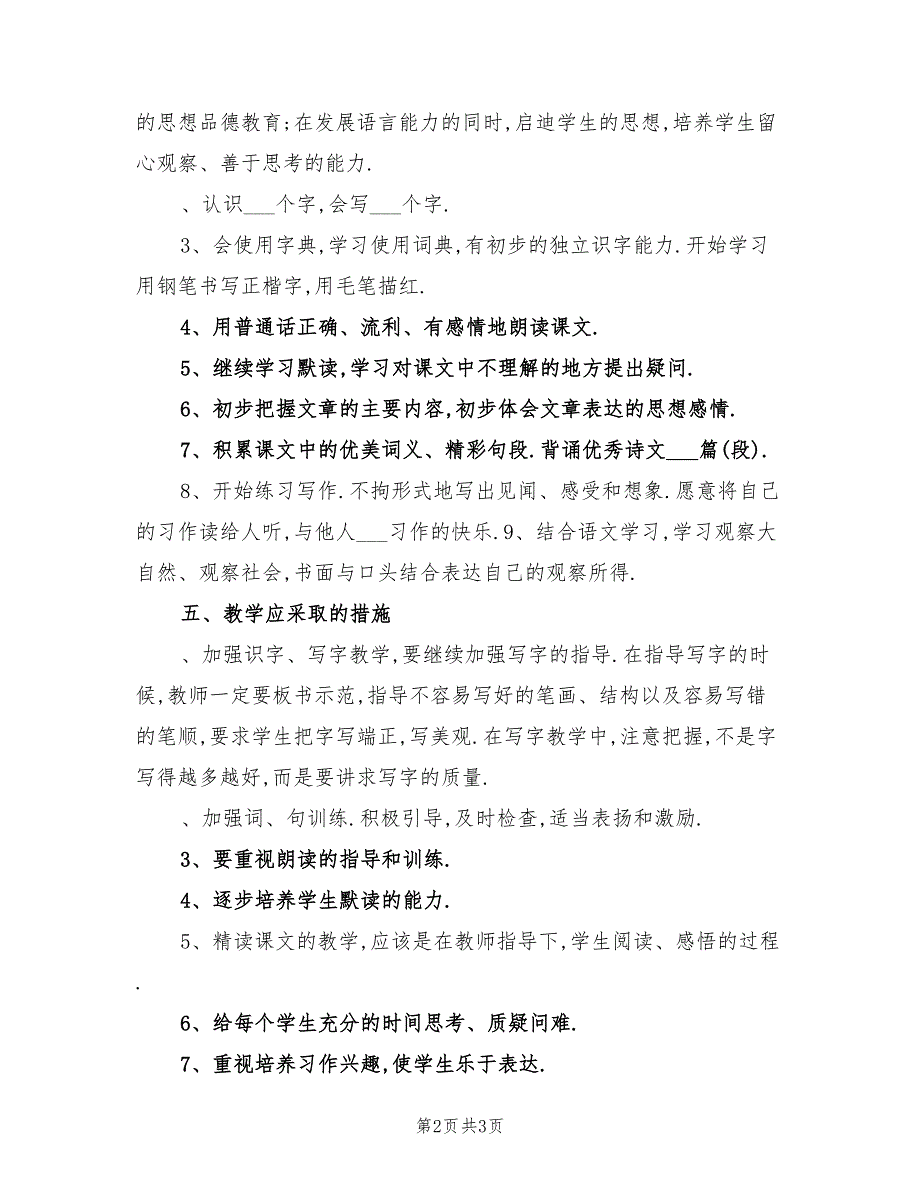 的思想品德教育;在发展语言能力的同时,启迪学生的思想,培养学生留
心观察、善于思考的能力.
、认识___个字,会写___个字.
3、会使用字典,学习使用词典,有初步的独立识字能力.开始学习
用钢笔书写正楷字,用毛笔描红.
4、用普通话正确、流利、有感情地朗读课文.
5、继续学习默读,学习对课文中不理解的地方提出疑问.
6、初步把握文章的主要内容,初步体会文章表达的思想感情.
7、积累课文中的优美词义、精彩句段.背诵优秀诗文___篇(段).
8、开始练习写作.不拘形式地写出见闻、感受和想象.愿意将自己
的习作读给人听,与他人___习作的快乐.9、结合语文学习,学习观察大
自然、观察社会,书面与口头结合表达自己的观察所得.
五、教学应采取的措施
、加强识字、写字教学,要继续加强写字的指导.在指导写字的时
候,教师一定要板书示范,指导不容易写好的笔画、结构以及容易写错
的笔顺,要求学生把字写端正,写美观.在写字教学中,注意把握,不是字
写得越多越好,而是要讲求写字的质量.
、加强词、句训练.积极引导,及时检查,适当表扬和激励.
3、要重视朗读的指导和训练.
4、逐步培养学生默读的能力.
5、精读课文的教学,应该是在教师指导下,学生阅读、感悟的过程
.
6、给每个学生充分的时间思考、质疑问难.
7、重视培养习作兴趣,使学生乐于表达.
第2页共3页